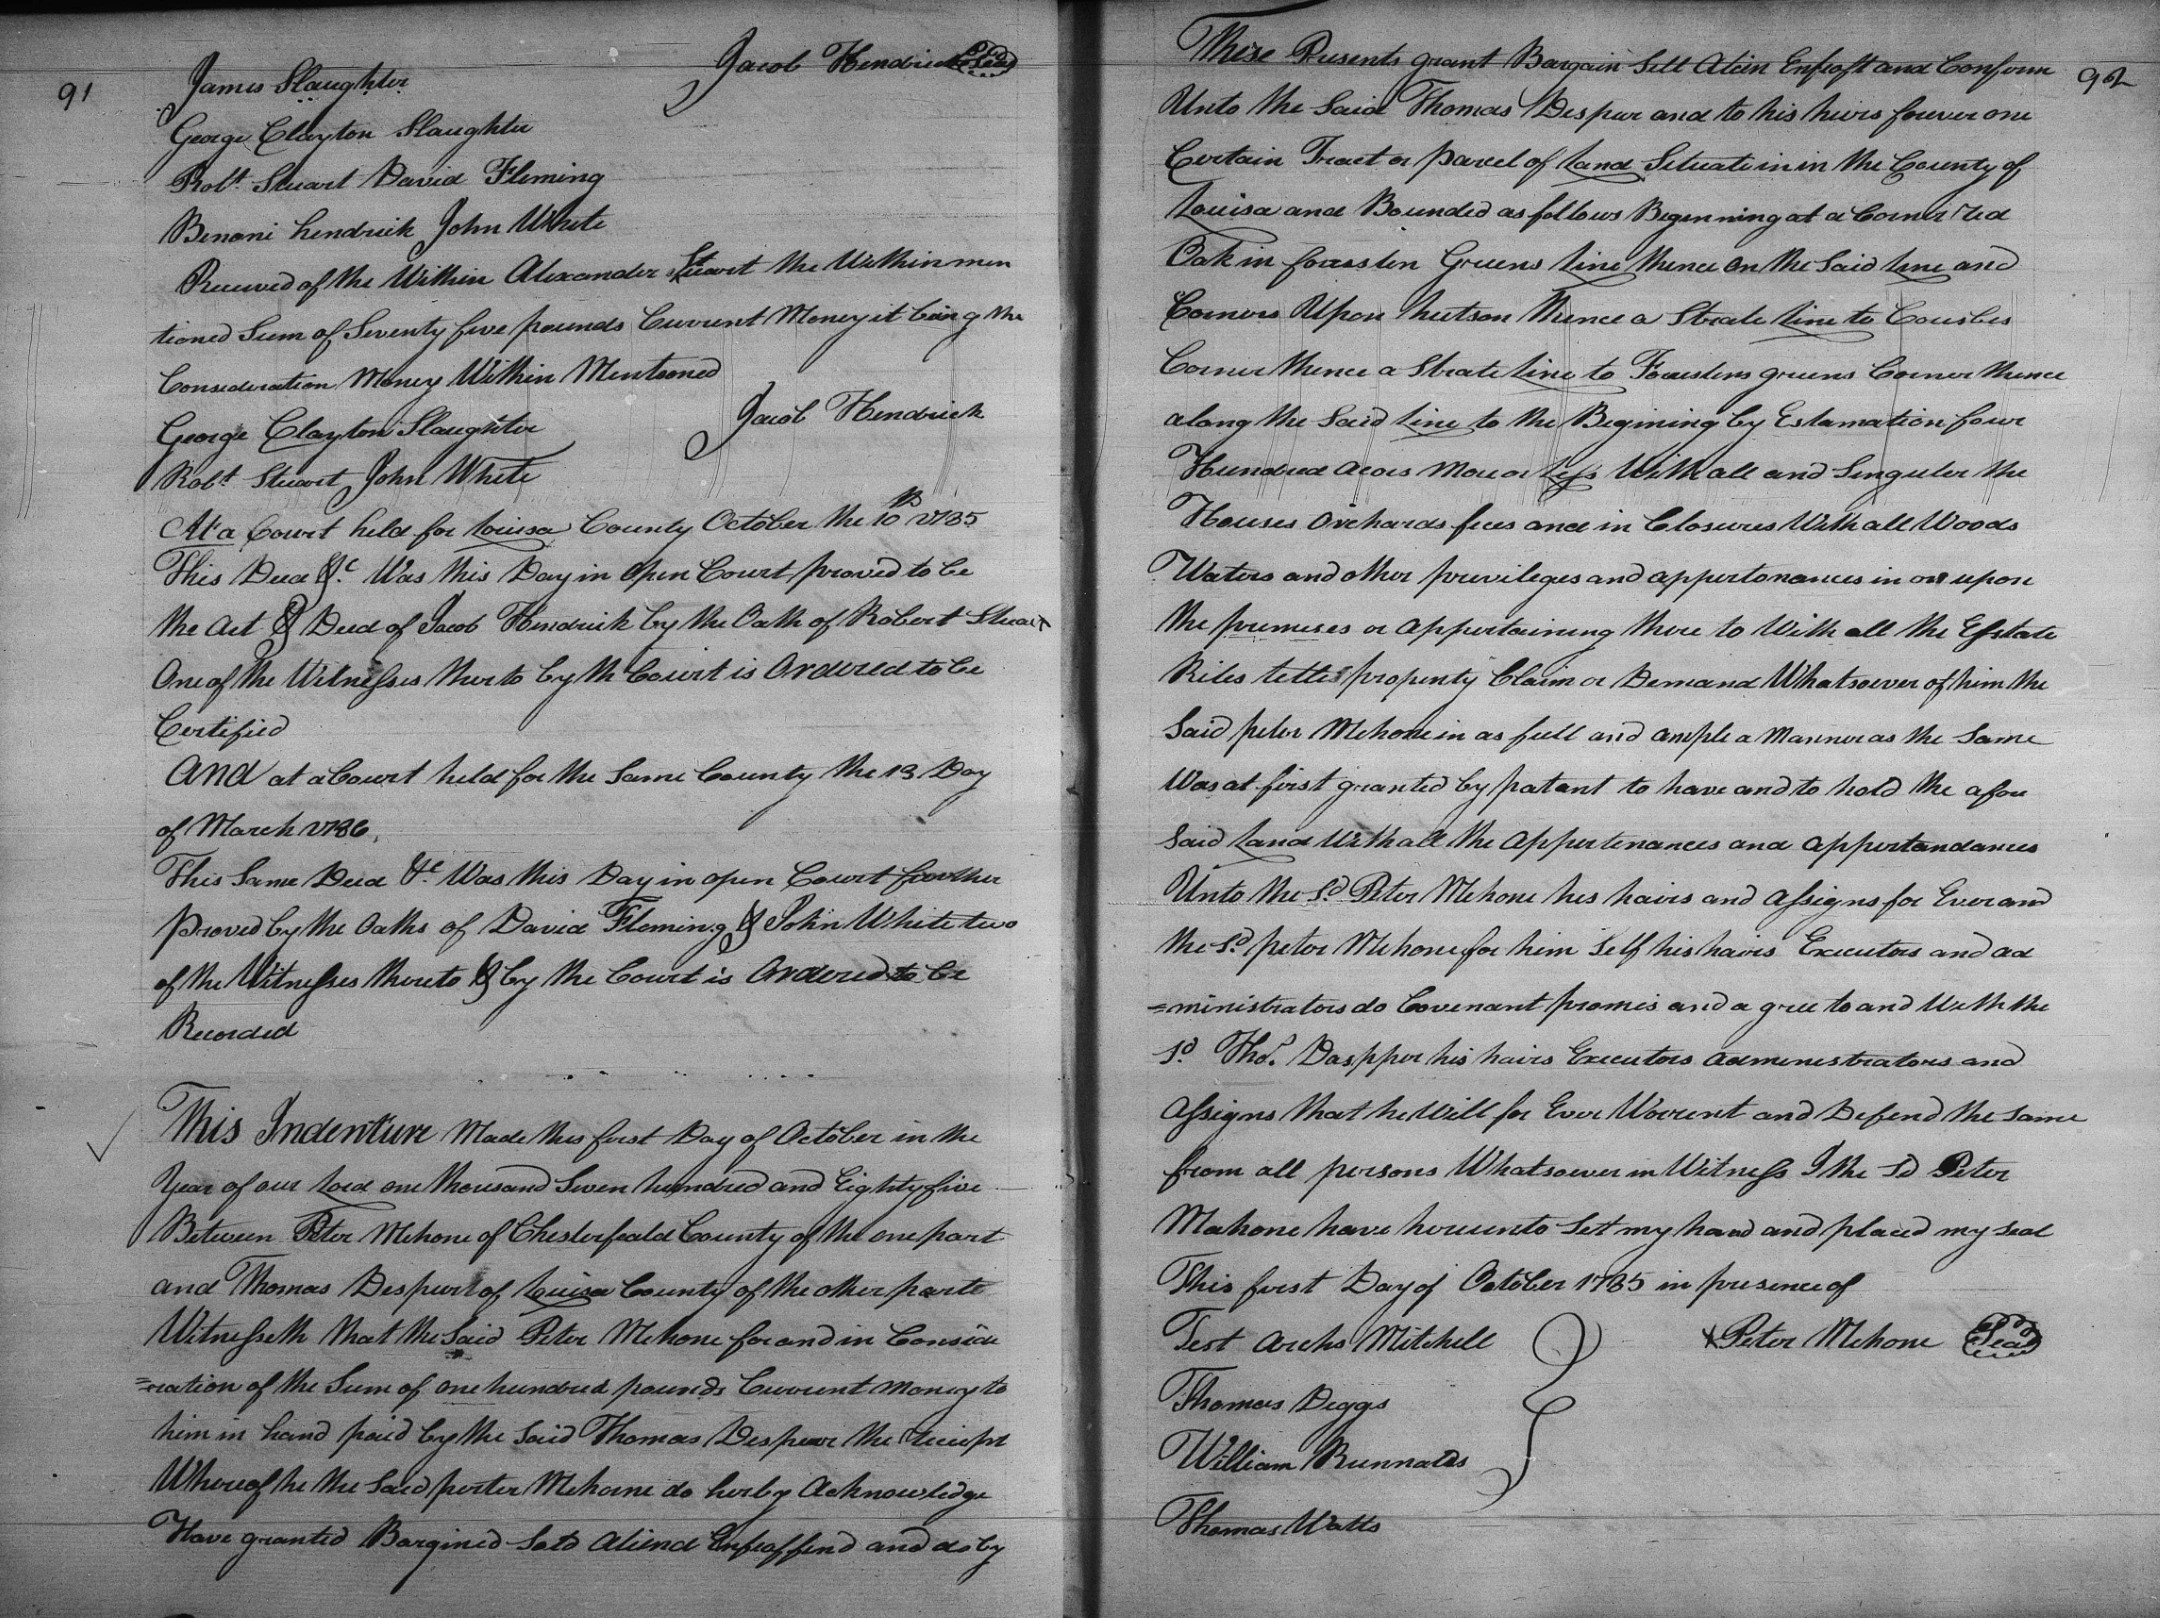 91
James Slaughter Jacob Hendrick Seal
George Clayton Slaughter
Robt. Stuart David Fleming
Benoni hendrick John White
Received of the Within Alexander Stuart the Within men
tioned Sum of Seventy five pounds Current Money it being the
Consideration Money Within Mentioned
George Clayton Slaughter Jacob Hendrick
Robt. Stuart John White
At a Court held for Louisa County October the 10th 1785
This Deed &c. Was this Day in open Court proved to be
the Act & Deed of Jacob Hendrick by the Oath of Robert Stuart
One of the Witnesses therto by th Court is Ordered to be
Certified
And at a Court held for the Same County the 13 Day
of March 1786.
This Same Deed &c. Was this Day in open Court further
proved by the Oaths of David Fleming & John White two
of the Witnesses thereto & by the Court is Ordered to be
Recorded
This Indenture Made this first Day of October in the
Year of our Lord one thousand Seven hundred and Eighty five
Between Peter Mehone of Chesterfeald County of the one part
and Thomas Despur of Louisa County of the other parte
Witnesseth that the Said Peter Mehone for and in Conside
=ration of the Sum of one hundred pounds Current Money to
him in hand paid by the Said Thomas Despear the Reciept
Whereof he the Said peter Mehone do herby Acknowledge
Have granted Bargined Sold Aliend Enfeaffend and do by
92
These Presents grant Bargain Sell Alein Enfeoft and Conform
Unto the Said Thomas Despur and to his heirs forever one
Certain Tract or parcel of Land Situate in in the County of
Louisa and Bounded as follows Beginning at a Corner red
Oak in forrsten Greens Line thence on the Said Line and
Corners Upon hutson Thence a Strate Line to Cousbes
Corner thence a Strate Line to Forrestens greens Corner thence
along the Said Line to the Begining by Estamation four
Hundred acors More or Less With all and Singuler the
Houses orchards fees and in Closures With all Woods
Waters and other privileges and appertonances in or upon
the premeses or appertaining there to With all the Esstate
Rites tettes propenty Claim or Demand Whatsoever of him the
Said peter Mehone in as full and ample a Manner as the Same
Was at first granted by patant to have and to hold the afore
Said Land With all the Appertenances and appertandances
Unto the Sd. Peter Mehone his hairs and Assigns for Ever and
the Sd. peter Mehone for him Self his hairs Executors and ad
=ministrators do Covenant promis and a gree to and With the
Sd. Thos. Daspper his hairs Executors admenestrators and
Assigns that he Will for Ever Worrent and Defend the Same
from all persons Whatsoever in Witness I the Sd Peter
Mahone have hereunto Set my hand and placed my seal
This first Day of October 1785 in presence of
Test Archs Mitchell Peter Mehone Seal
Thomas Diggs
William Bunnales
Thomas Watts